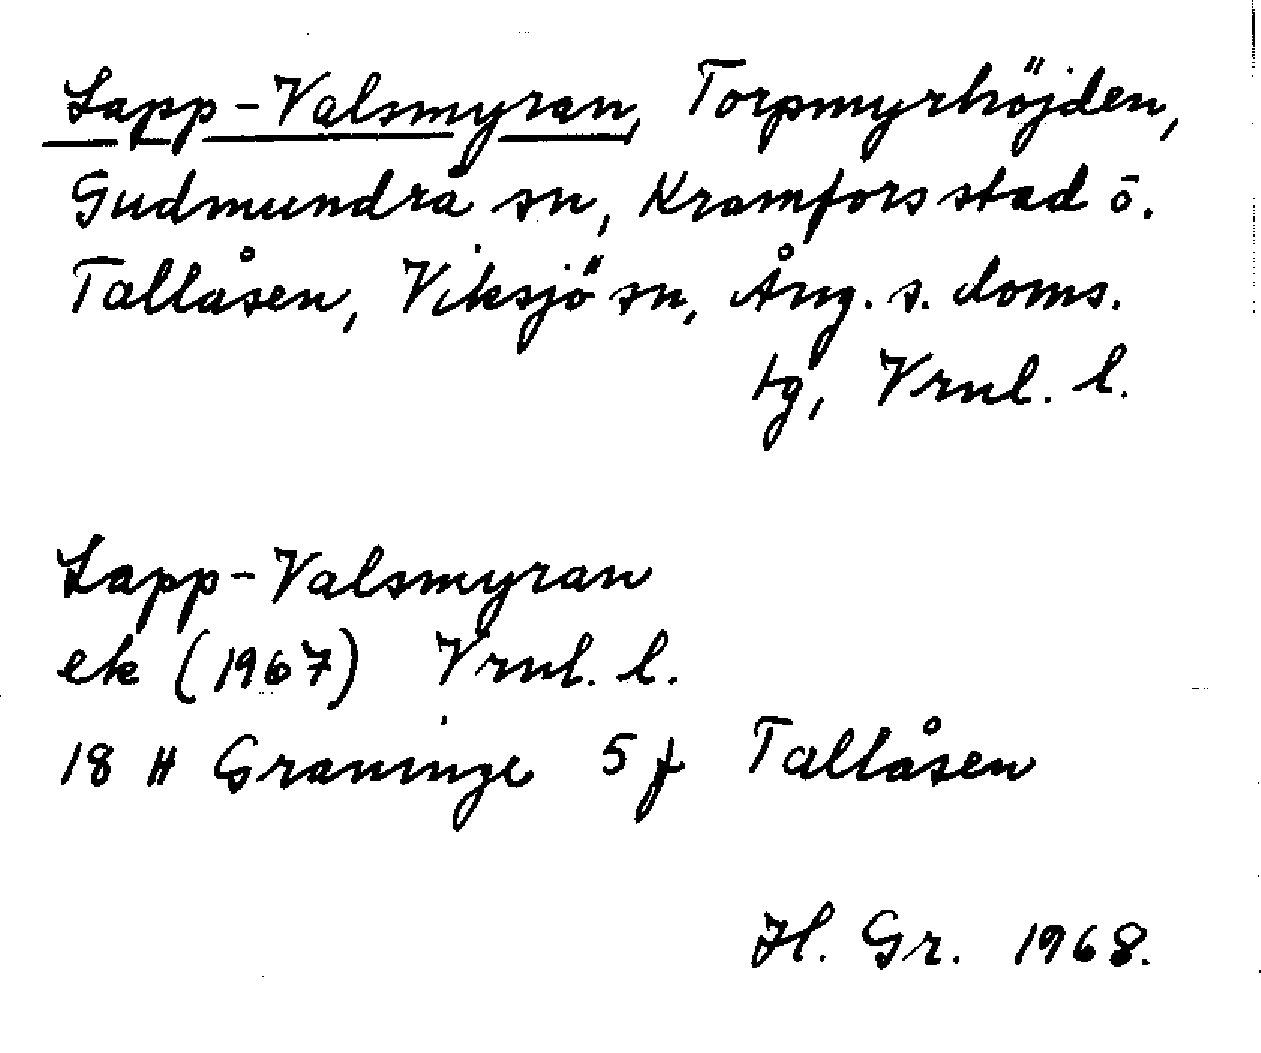 Lapp-Valsmyran, Torpmyrhöjden,
Gudmundrå sn, Kramfors stad ö.
Tallåsen, Viksjö sn, Ång. s. doms.
tg, Vrnl. l.
Lapp-Valsmyran
ek (1967) Vrnl. l.
18 H Graninge 5 f Tallåsen
H. Gr. 1968.